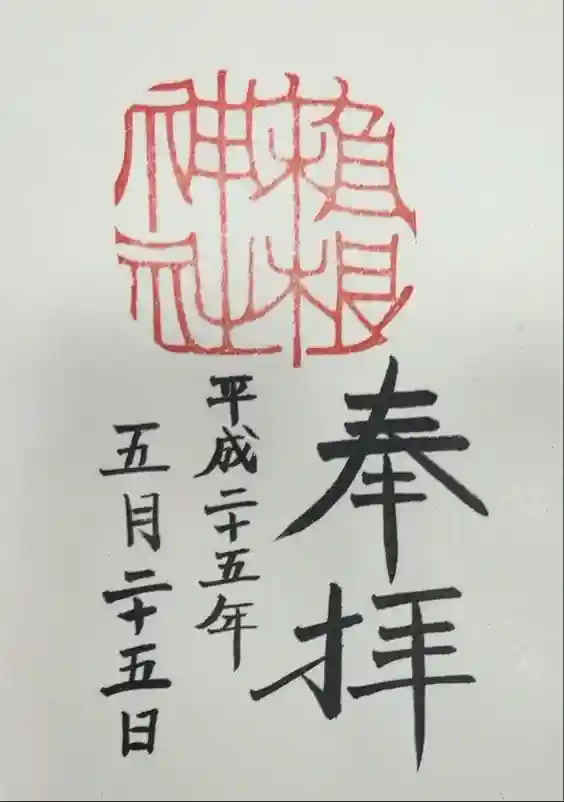 頼根
神社
奉拝
平成二十五年
五月二十五日